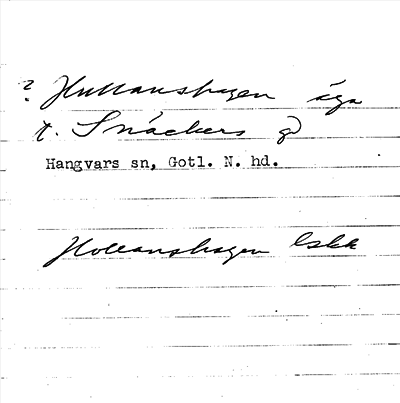 ? Hultanshagen äga
t. Snäckers g
Hangvars sn, Gotl. N. hd.
Hollanshagen Lskk